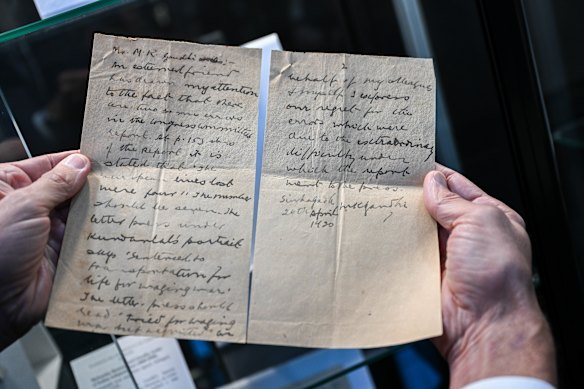 Mr. M K Gandhi
An esteemed friend
has drawn my attention
to the fact that there
are two errors
in the Congress Committee
report. At p. 153
of the Report it is
stated that the
lives lost
were four". The number
should be seven. The
letter press under
Kundanlal's portrait
says "Sentenced to
transportation for
life for waging war".
The letter press should
read "tried for waging
war but acquitted". On
2
behalf of my colleagues
& myself I express
our regret for the
errors which were
due to the extraordinary
difficulty under
which the report
went to the press.
Sinhagad MKGandhi
20th April
1920